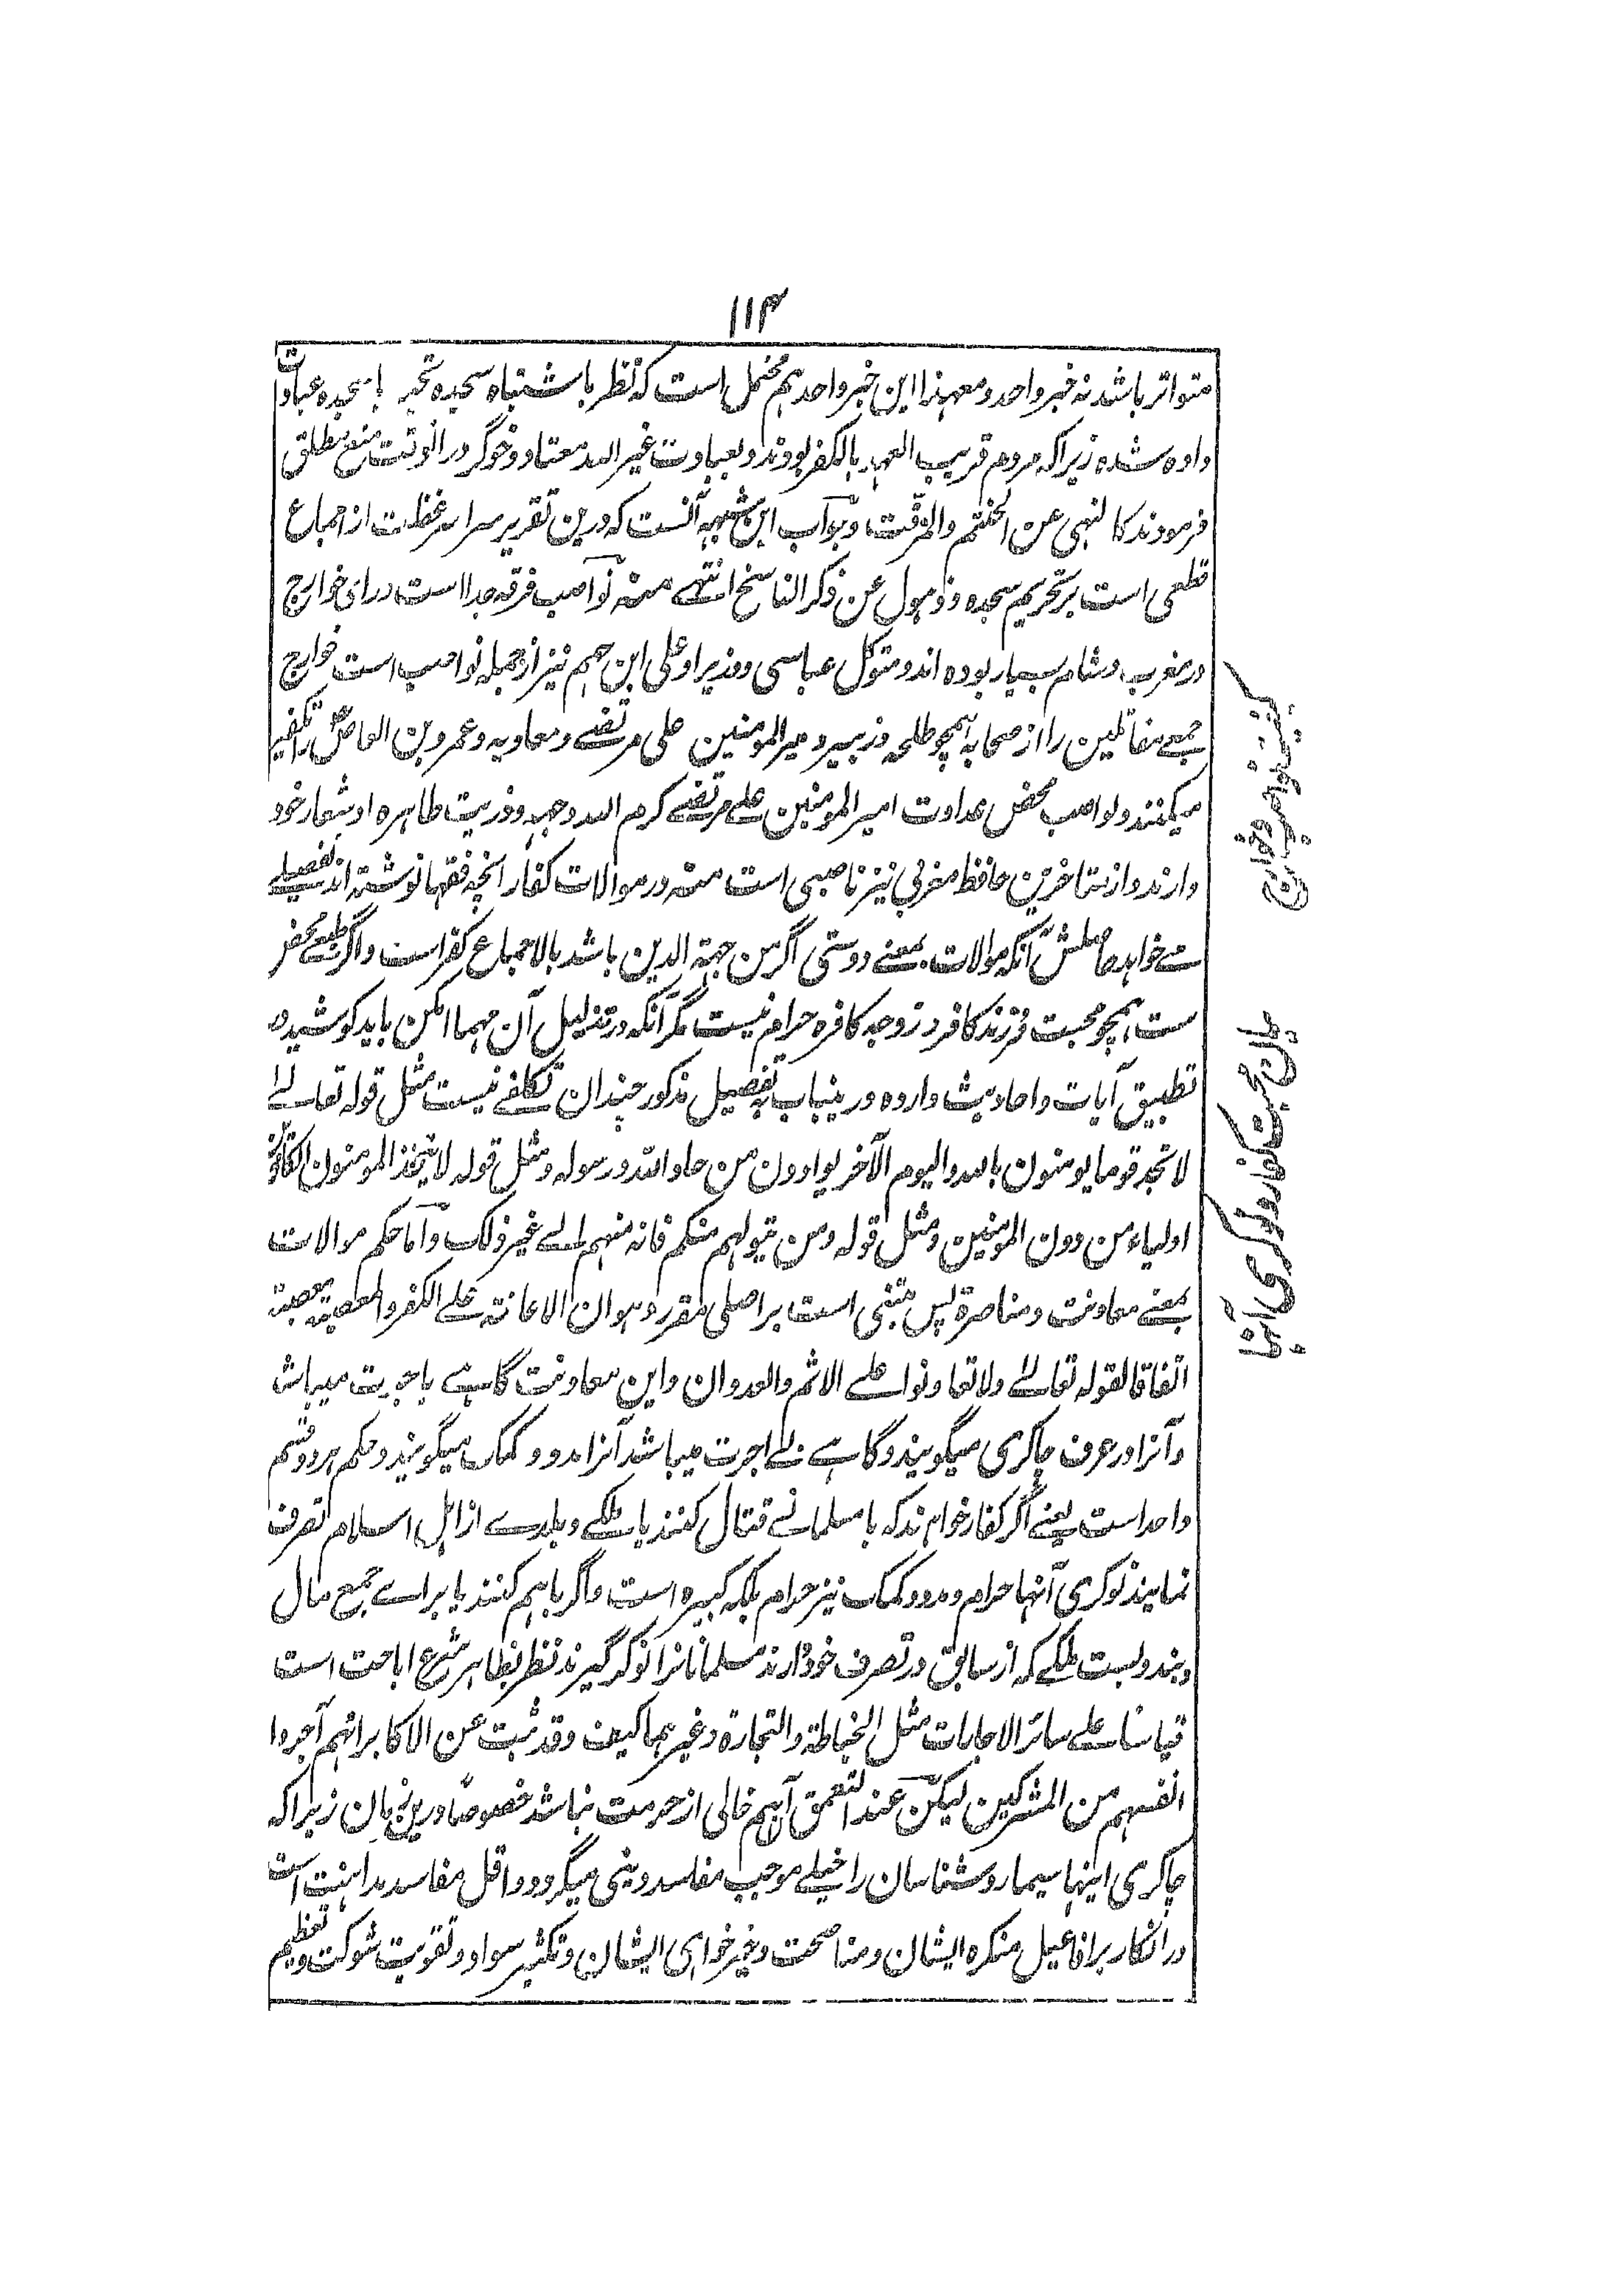 ۱۱۴
متواتر باشد نه خبر واحد و معهذا این خبر واحد هم محتمل است که نظر باشتباه سجده تحیه با سجده عبادات
داده شده زیرا که مردم قریب العهد بالکفر بودند و بعبادت غیر الله معتاد و خوگر در انوقت منع مطلق
فرمودند کالنهی عن الحنتم والمزفت، و جواب این شبهه آنست که درین تقریر سراسر غفلت از اجماع
قطعی است بر تحریم سجده و ذهول عن ذکر الناسخ انتهے منه نواصب فرقه جدا است ورای خوارج
در مغرب و شام بسیار بوده اند و متوکل عباسی و وزیر او علی ابن جهم نیز از جمله نواصب است خوارج
جمیع مقاتلین را از صحابه همچو طلحه و زبیر و امیر المومنین علی مرتضے و معاویه و عمرو بن العاص را تکفیر
میکنند و نواصب محض عداوت امیر المومنین علے مرتضے کرم الله وجهه و ذریت طاهره او شعار خود
دارند و از متاخرین حافظ مغربی نیز ناصبی است منه در موالات کفار انچه فقها نوشته اند تفصیلے
مے خواهد حاصلش آنکه موالات بمعنے دوستی اگر من جهة الدین باشد بالاجماع کفر است و اگر طبعے محض
ست همچو محبت فرزند کافر و زوجه کافره حرام نیست مگر آنکه در تذلیل آن مهما امکن باید کوشید و
تطبیق آیات و احادیث وارده درینباب بتفصیل مذکور چندان تکلفے نیست مثل قوله تعالے
لا تجد قوما یومنون بالله والیوم الآخر یوادون من حاد الله ورسوله و مثل قوله لا یتخذ المومنون الکافرین
اولیاء من دون المومنین و مثل قوله ومن یتولهم منکم فانه منهم الے غیر ذلک و اما حکم موالات
بمعنے معاونت و مناصرة پس مبتنی است بر اصلی مقرر و هو ان الاعانة علے الکفر والمعصیة معصیة
اتفاقا لقوله تعالے ولا تعاونوا علے الاثم والعدوان و این معاونت گاهے باجرت میباشد
و آنرا در عرف چاکری میگویند و گاهے بے اجرت میباشد آنرا مدد و کمک میگویند و حکم هر دو قسم
واحد است یعنے اگر کفار خواهند که با مسلمانے قتال کنند یا ملکے و بلدے از اهل اسلام تصرف
نمایند نوکری آنها حرام و مدد و کمک نیز حرام بلکه کبیره است و اگر باهم کنند یا براے جمع مال
و بندوبست ملکے که از سابق در تصرف خود دارند مسلمانانرا نوکر گیرند نظر بظاهر شرع اباحت است
قیاسا علے سائر الاجارات مثل الخیاطة والتجارة و غیرهما کیف وقد ثبت عن الاکابر انهم آجروا
انفسهم من المشرکین لیکن عند التعمق آنهم خالی از حرمت نباشد خصوصا درین زمان زیرا که
چاکری اینها سیما روشناسان را خیلے موجب مفاسد دینی میگردد و اقل مفاسد مداهنت است
در انکار بر افاعیل منکره ایشان و مناصحت و خیرخواهی ایشان و تکثیر سواد و تقویت شوکت و تعظیم
نواصب و خوارج
بیان محبت کفار و نوکری آنها